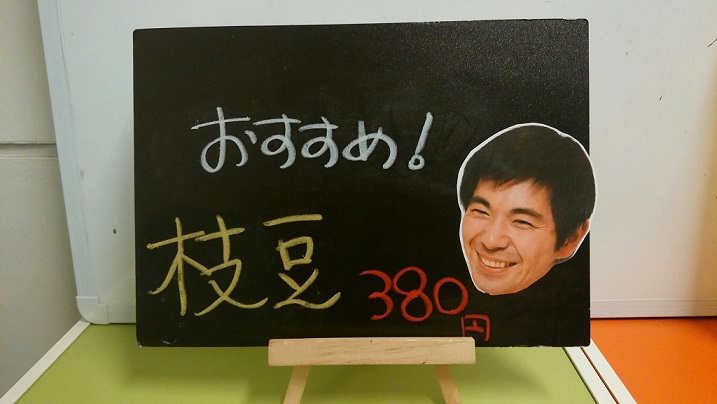 おすすめ!
枝豆 380円